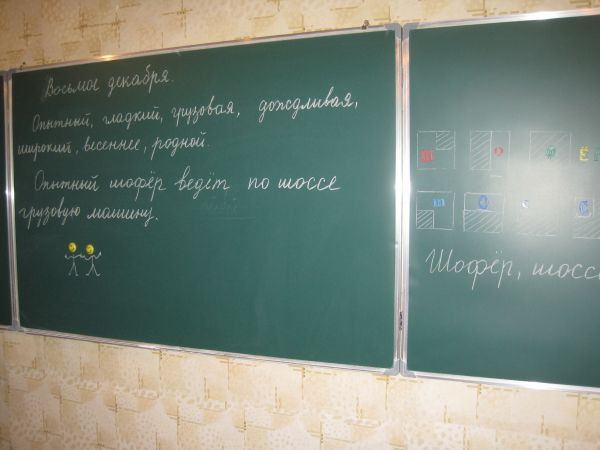 Восьмое декабря.
Опытный, гладкий, грузовая, дождливая,
широкий, весеннее, родной.
Опытный шофёр ведёт по шоссе
грузовую машину.
Ш О Ф Ё
Ш О С С
Шофёр, шоссе